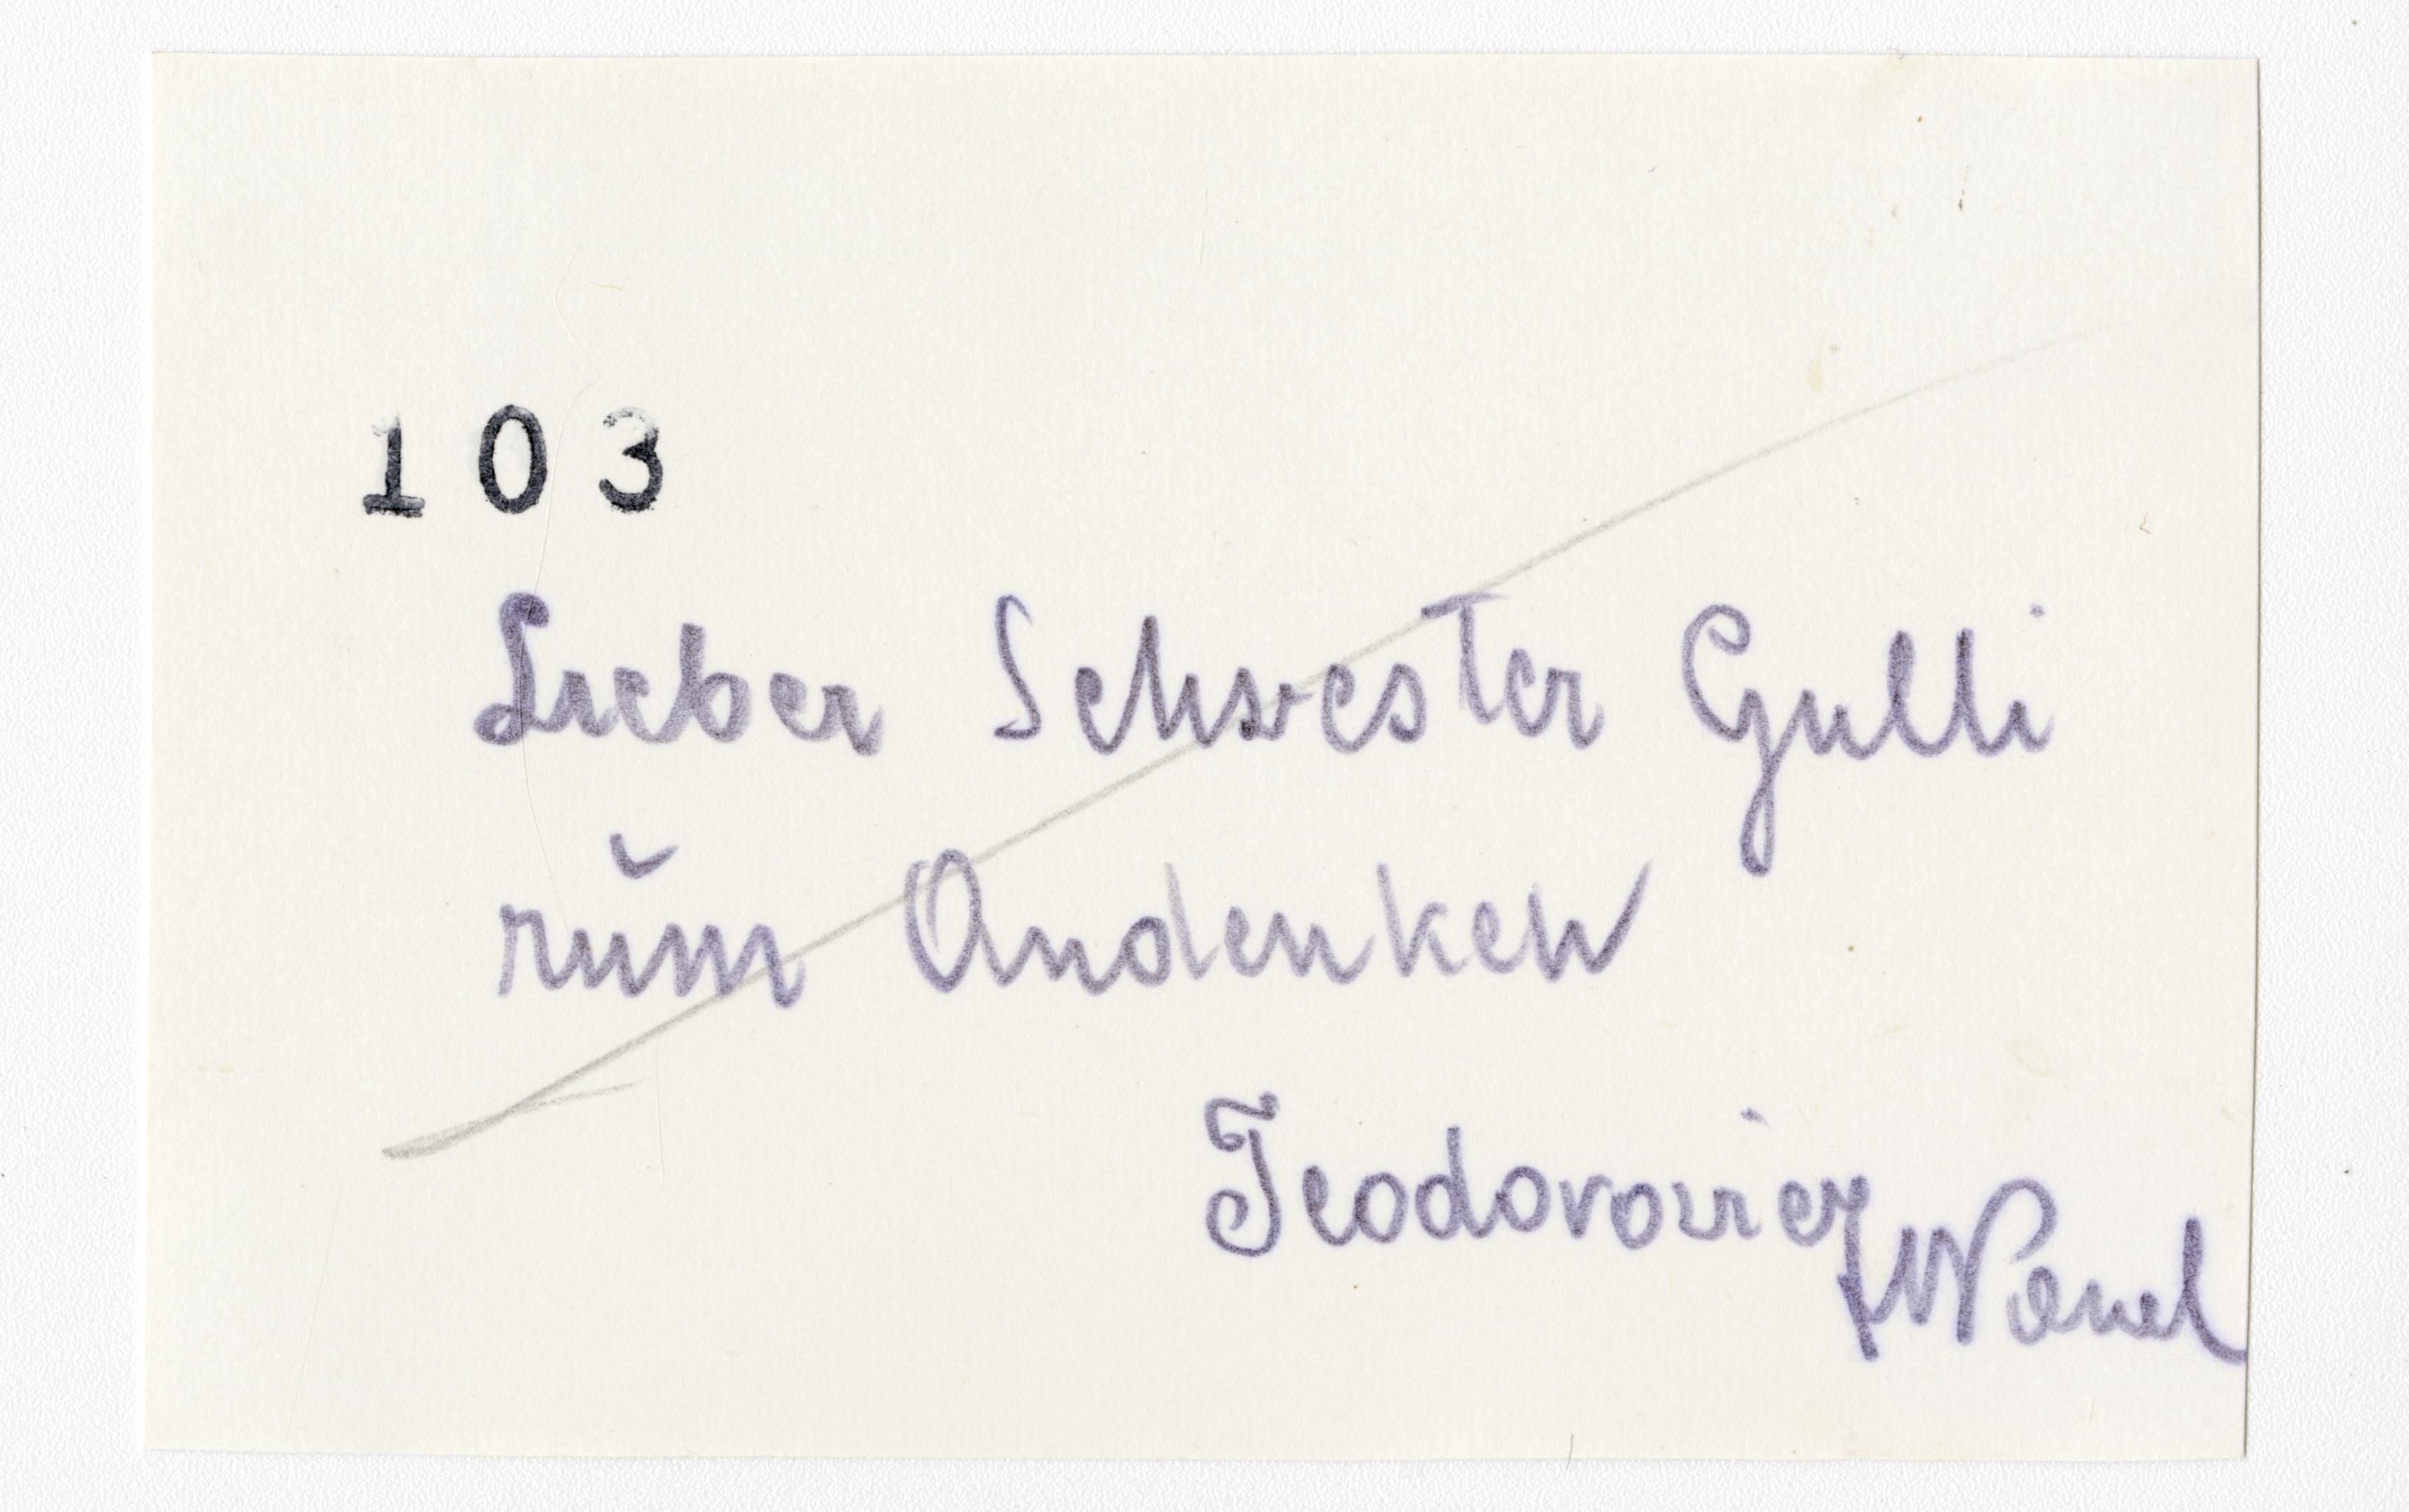 103
Lieber Schwester Gulli
zŭm Andenken
Teodorovicz